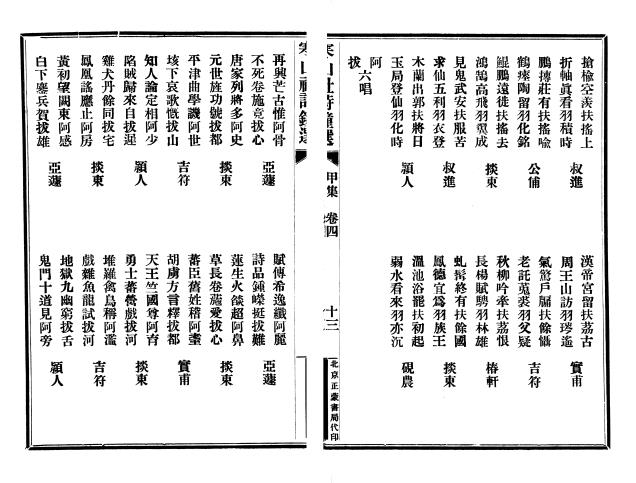 搶榆空羨扶搖上
折軸真看羽積時 叔進
鵬摶莊有扶搖喩
鶴瘞陶留羽化銘 公俌
鯤鵬遠徙扶搖去
鴻鵠高飛羽翼成 掞東
見鬼武安扶服苦
求仙五利羽衣登 叔進
木蘭出郭扶將日
玉局登仙羽化時 穎人
漢帝宮留扶荔古
周王山訪羽琌遙 實甫
氣驚戶牖扶餘傷
老託菟裘羽父疑 吉符
秋柳吟牽扶荔恨
長楊賦騁羽林雄 椿軒
虬髯終有扶餘國
鳳德宜爲羽族王 掞東
溫池浴罷扶初起
弱水看來羽亦沉 硯農
阿拔 六唱
寒山社詩鐘選 甲集 卷四 十三
北京正蒙書局代印
再興芒古惟阿骨
不死卷施竟拔心 亞蘧
唐家列將多阿史
元世旌功號拔都 掞東
平津曲學譏阿世
垓下哀歌慨拔山 吉符
知人論定相阿少
陷賊歸來自拔遲 穎人
雞犬丹餘同拔宅
鳳凰謠應止阿房 掞東
黃初望闕東阿感
白下鏖兵賀拔雄 亞蘧
賦傳希逸纖阿麗
詩品鍾嶸挺拔難 亞蘧
蓮生火燄超阿鼻
草長卷葹愛拔心 掞東
蕃臣舊姓稽阿臺
胡虜方言釋拔都 實甫
天王竺國尊阿育
勇士蕃營戲拔河 掞東
堆羅禽鳥稱阿濫
戲雜魚龍試拔河 吉符
地獄九幽窮拔舌
鬼門十道見阿旁 穎人